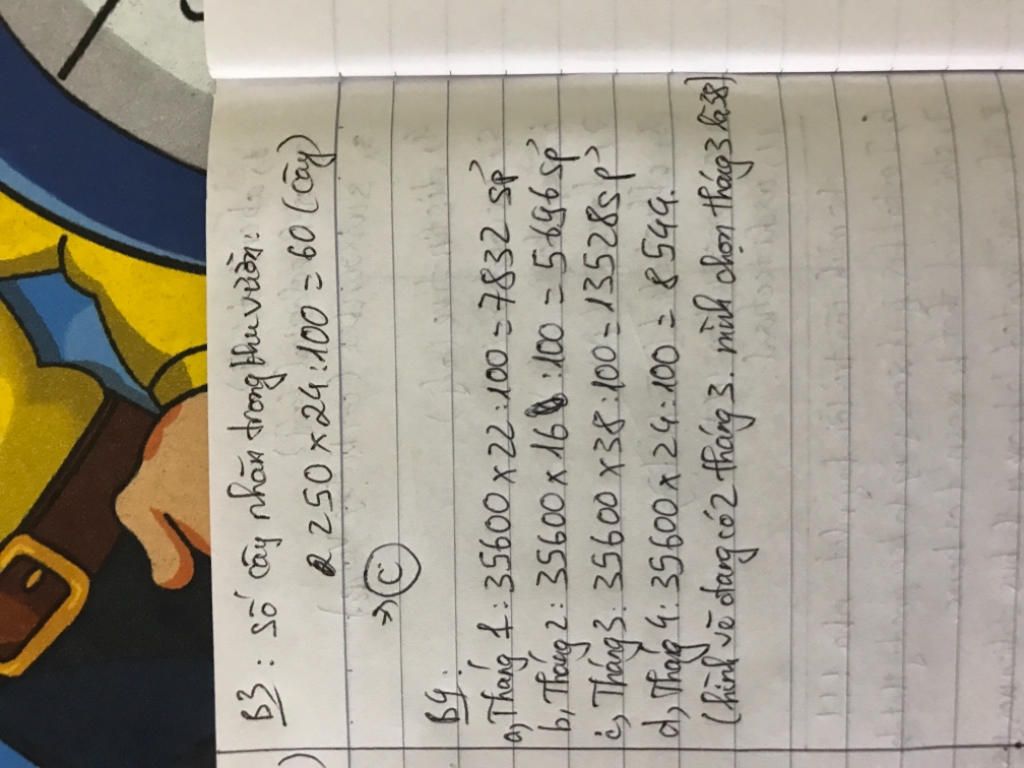 B3: Số cây nhãn trong khu vườn:
250 x 24 : 100 = 60 (cây)
=> C
B4:
a, Tháng 1 : 35600 x 22 : 100 = 7832 sp
b, Tháng 2 : 35600 x 16 : 100 = 5696 sp
c, Tháng 3 : 35600 x 38 : 100 = 13528 sp
d, Tháng 4 : 35600 x 24 : 100 = 8544.
(hình vẽ đang có 2 tháng 3. mình chọn tháng 3 là 38)